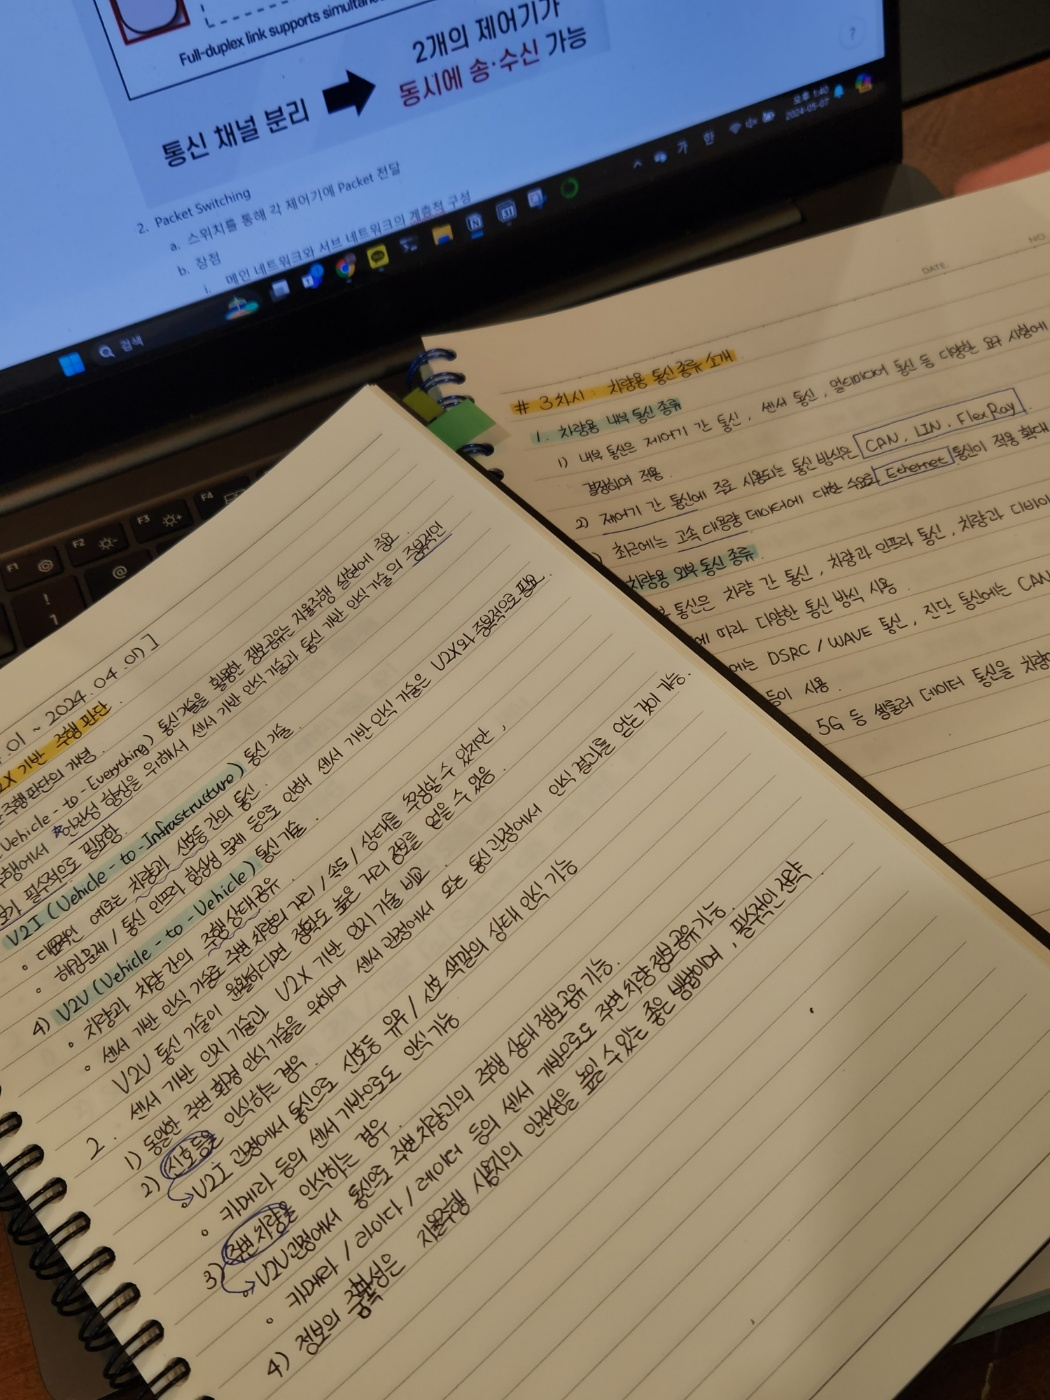 Full-duplex link supports
통신 채널 분리
2개의 제어기가
동시에 송·수신 가능
2. Packet Switching
a. 스위치를 통해 각 제어기에 Packet 전달
b. 장점
i. 메인 네트워크와 서브 네트워크의 계층적 구성
검색
오후 1:40
2024-05-07
F1
F2
F3
F4
DATE
NO
# 3차시 : 차량용 통신 종류 소개
1. 차량용 내부 통신 종류
1) 내부 통신은 제어기 간 통신, 센서 통신, 멀티미디어 통신 등 다양한 요구 사항에
결정하여 적용
2) 제어기 간 통신에 주로 사용되는 통신 방식은 CAN, LIN, FlexRay
) 최근에는 고속 대용량 데이터에 대한 수요로 Ethernet 통신이 적용 확대
차량용 외부 통신 종류
통신은 차량 간 통신, 차량과 인프라 통신, 차량과 디바이
에 따라 다양한 통신 방식 사용.
에는 DSRC / WAVE 통신, 진단 통신에는 CAN
등이 사용.
5G 등 셀룰러 데이터 통신을 차량
.01 ~ 2024.04.07]
기반 주행 판단
주행판단의 개념.
Vehicle-to-Everything) 통신기술을 활용한 정보공유는 자율주행 실현에 중요
주행에서 안전성 향상을 위해서 센서 기반 인식 기술과 통신 기반 인식 기술의 중복적인
필수적으로 필요함.
V2I (Vehicle-to-Infrastructure) 통신 기술.
• 대표적인 예로는 차량과 신호등 간의 통신.
• 해킹문제 / 통신 인프라 항상성 문제 등으로 인해 센서 기반 인식 기술은 V2X와 중복적으로 필요.
4) V2V (Vehicle-to-Vehicle) 통신 기술.
• 차량과 차량 간의 주행상태 공유.
• 센서 기반 인식 기술로 주변 차량의 거리 / 속도 / 상태를 추정할 수 있지만,
V2V 통신 기술이 원활하다면 정확도 높은 거리 정보를 얻을 수 있음.
2. 센서 기반 인지 기술과 V2X 기반 인지 기술 비교
1) 동일한 주변 환경 인식 기술을 위하여 센서 관점에서 또는 통신 관점에서 인식 결과를 얻는 것이 가능.
2) 신호등을 인식하는 경우.
V2I 관점에서 통신으로 신호등 유무 / 신호 색깔의 상태 인식 가능
• 카메라 등의 센서 기반으로도 인식 가능
3) 주변 차량을 인식하는 경우.
V2V 관점에서 통신으로 주변 차량과의 주행 상태 정보 공유 가능.
• 카메라 / 라이다 / 레이더 등의 센서 기반으로도 주변 차량 정보 공유 가능.
4) 정보의 중복성은 자율주행 사용자의 안전성을 높일 수 있는 좋은 방법이며, 필수적인 전략